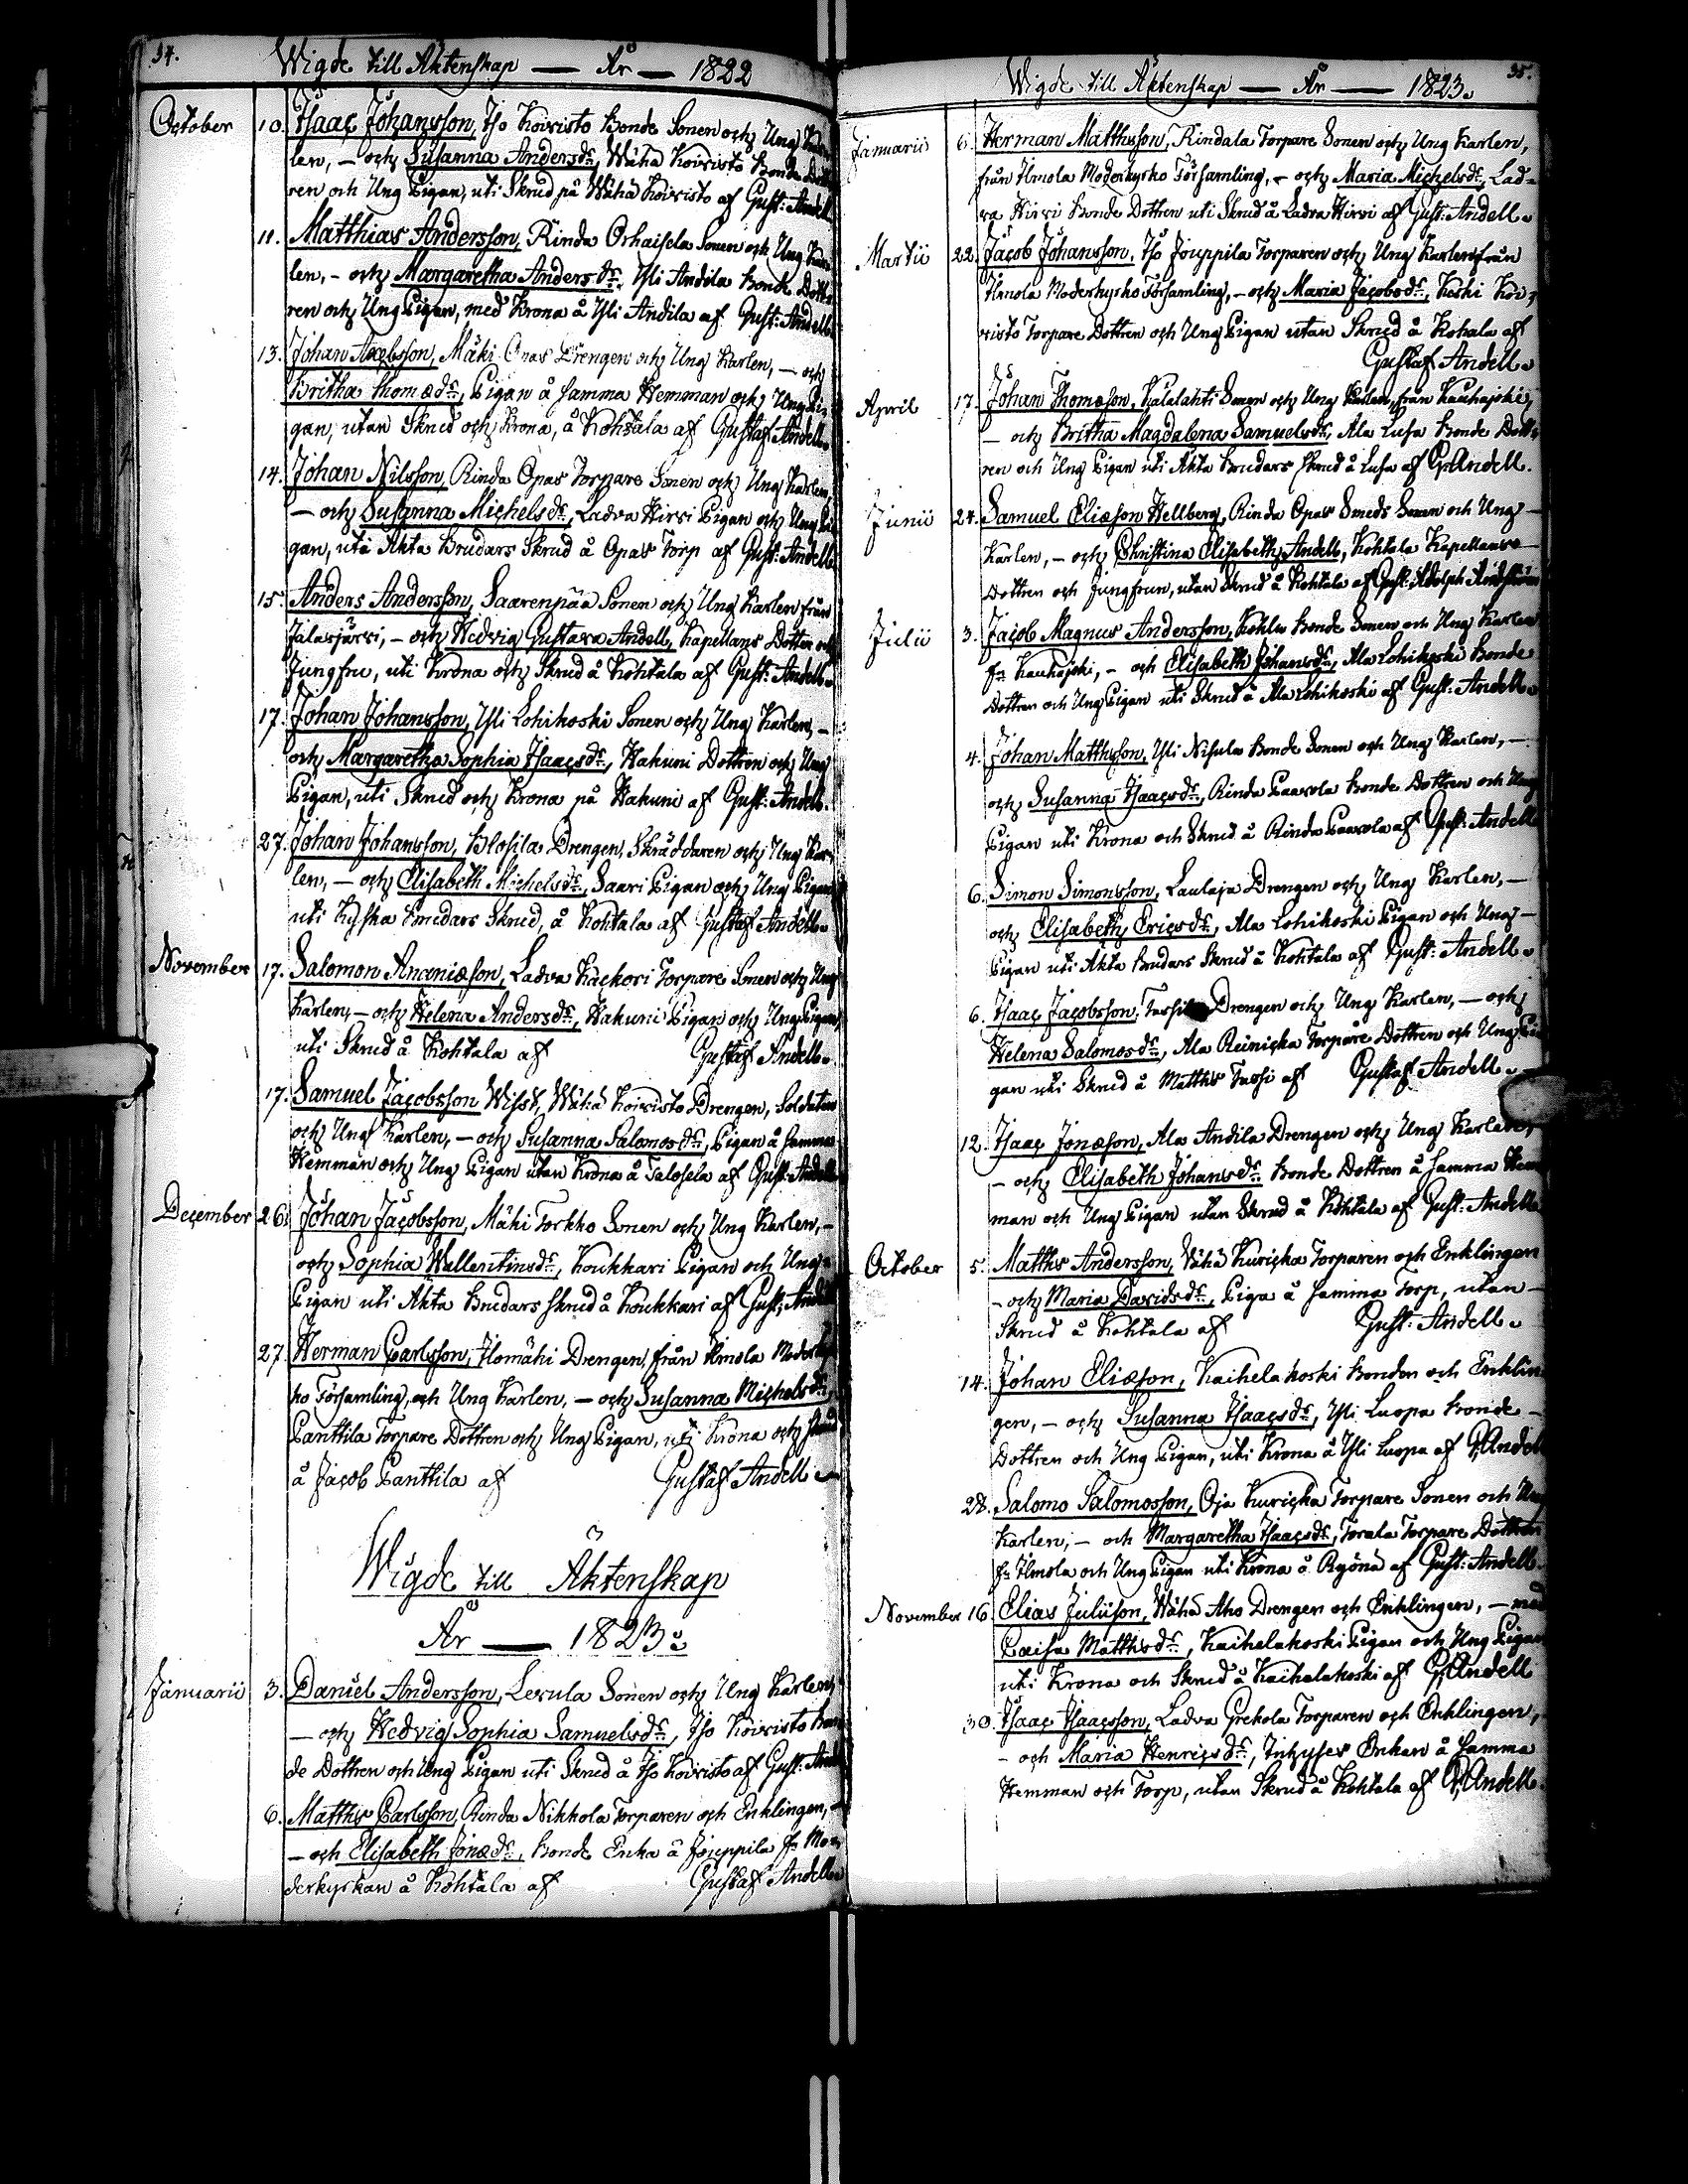 34.
Wigde till Äktenskap — År — 1822
October 10. Isaac Johansson, Iso Koivisto Bonde Sonen och Ung Kar-
len, — och Susanna Andersdr, Wähä Koivisto Bonde Dott-
ren och Ung Pigan, uti Skrud på Wähä Koivisto af Gust: Andell
11. Matthias Andersson, Rinda Orhaisela Sonen och Ung Kar-
len, - och Margaretha Andersdr, Yli Andila Bonde Dott-
ren och Ung Pigan, med Krona å Yli Andila af Gust: Andell.
13. Johan Jacobsson, Mäki Opas Drengen och Ung Karlen, — och
Britha Thomædr, Pigan å samma Hemman och Ung Pi-
gan, utan Skrud och Krona, å Kohtala af Gustaf Andell.
14. Johan Nilsson, Rinda Opas Torpare Sonen och Ung Karlen,
— och Susanna Michelsdr, Ladva Hirvi Pigan och Ung Pi-
gan, uti Äkta Brudars Skrud å Opas Torp af Gust: Andell.
15. Anders Andersson, Saarenpää Sonen och Ung Karlen från
Jalasjärvi, — och Hedvig Gustava Andell, Kapellans Dotter och
Jungfru, uti Krona och Skrud å Kohtala af Gust: Andell.
17. Johan Johansson, Yli Lohikoski Sonen och Ung Karlen, -
och Margaretha Sophia Isaacsdr, Hakuni Dottren och Ung
Pigan, uti Skrud och Krona på Hakuni af Gust: Andell.
27. Johan Johansson, Klosila Drengen, Skräddaren och Ung Kar-
len, — och Elisabeth Michelsdr, Saari Pigan och Ung Pigan
uti Kyska Brudars Skrud, å Kohtala af Gustaf Andell.
November 17. Salomon Ananiæson, Ladva Käckori Torpare Sonen och Ung
Karlen, — och Helena Andersdr, Hakuni Pigan och Ung Pigan
uti Skrud å Kohtala af Gustaf Andell.
17. Samuel Jacobsson Wisst, Wähä Koivisto Drengen, Soldaten
och Ung Karlen, — och Susanna Salomosdr, Pigan å samma
Hemman och Ung Pigan utan Krona å Talosela af Gust: Andell
December 26. Johan Jacobsson, Mäki Torkko Sonen och Ung Karlen, -
och Sophia Wallentinsdr, Koukkari Pigan och Ung
Pigan uti Äkta Brudars skrud å Koukkari af Gust: Andell
27. Herman Carlsson, Ilomäki Drengen, från Ilmola Moderkyr-
ko Församling, och Ung Karlen, — och Susanna Michelsdr,
Panttila Torpare Dottren och Ung Pigan, uti Krona och skrud
å Jacob Panttila af Gustaf Andell
Wigde till Äktenskap
År — 1823.
Januarii 3. Daniel Andersson, Levula Sonen och Ung Karlen,
— och Hedvig Sophia Samuelsdr, Iso Koivisto Bon-
de Dottren och Ung Pigan uti Skrud å Iso Koivisto af Gust: Andell
6. Matths Carlsson, Rinda Nikkola Torparen och Enklingen,
— och Elisabeth Jonædr, Bonde Enka å Jouppila fn Mo-
derkyrkan å Kohtala af Gustaf Andell.
35.
Wigde till Äktenskap — År — 1823.
Januarii 6. Herman Matthsson, Rindala Torpare Sonen och Ung Karlen,
från Ilmola Moderkyrko Församling, - och Maria Michelsdr, Lad-
va Hirvi Bonde Dottren uti Skrud å Ladva Hirvi af Gust: Andell.
Martii 22. Jacob Johansson, Iso Jouppila Torparen och Ung Karlen från
Ilmola Moderkyrko Församling, - och Maria Jacobsdr, Koski Koi-
visto Torpare Dottren och Ung Pigan utan Skrud å Kohala af
Gustaf Andell.
April 17. Johan Thomæson, Kalalahti Sonen och Ung Karlen, från Kauhajoki,
— och Britha Magdalena Samuelsdr, Ala Lusa Bonde Dott-
ren och Ung Pigan uti Äkta Brudars skrud å Lusa af G: Andell.
Junii 24. Samuel Eliæson Hellberg, Rinda Opas Smeds Sonen och Ung
Karlen, — och Christina Elisabeth Andell, Kohtala Kapellans
Dottren och Jungfrun, utan Skrud å Kohtala af Gust: Adolph
Julii 3. Jacob Magnus Andersson, Kohlu Bonde Sonen och Ung Karlen
fn Kauhajoki, — och Elisabeth Johansdr, Ala Lohikoski Bonde
Dottren och Ung Pigan uti Skrud å Ala Lohikoski af Gust: Andell.
4. Johan Matthsson, Yli Nisula Bonde Sonen och Ung Karlen, —
och Susanna Isaacsdr, Rinda Paavola Bonde Dottren och Ung
Pigan uti Krona och Skrud å Rinda Paavola af Gust: Andell
6. Simon Simonsson, Laulaja Drengen och Ung Karlen, —
och Elisabeth Ericsdr, Ala Lohikoski Pigan och Ung
Pigan uti Äkta Brudars Skrud å Kohtala af Gust: Andell.
6. Isaac Jacobsson, Drengen och Ung Karlen, — och
Helena Salomosdr, Ala Reinicka Torpare Dottren och Ung Pi-
gan uti Skrud å Matths Tassi af Gustaf Andell.
12. Isaac Jonæson, Ala Andila Drengen och Ung Karlen,
— och Elisabeth Johansdr Bonde Dottren å samma Hem-
man och Ung Pigan utan Skrud å Kohtala af Gust: Andell
October 5. Matths Andersson, Vähä Kuricka Torparen och Enklingen
- och Maria Davidsdr, Piga å samma Torp, utan
Skrud å Kohtala af Gust: Andell.
14. Johan Eliæson, Kaihelakoski Bonden och Enklin-
gen, - och Susanna Isaacsdr, Yli Luopa Bonde
Dottren och Ung Pigan, uti Krona å Yli Luopa af G: Andell
28. Salomo Salomosson, Oja Kuricka Torpare Sonen och Ung
Karlen, — och Margaretha Isaacsdr, Torala Torpare Dottren
fn Ilmola och Ung Pigan uti Krona å Ryönä af Gust: Andell.
November 16. Elias Juliison, Wähä Aho Drengen och Enklingen, — med
Caisa Matthsdr, Kaihelakoski Pigan och Ung Pigan
uti Krona och Skrud å Kaihelakoski af G: Andell
30. Isaac Isaacsson, Ladva Grekola Torparen och Enklingen,
- och Maria Henricsdr, Inhyses Enkan å samma
Hemman och Torp, utan Skrud å Kohtala af G: Andell.